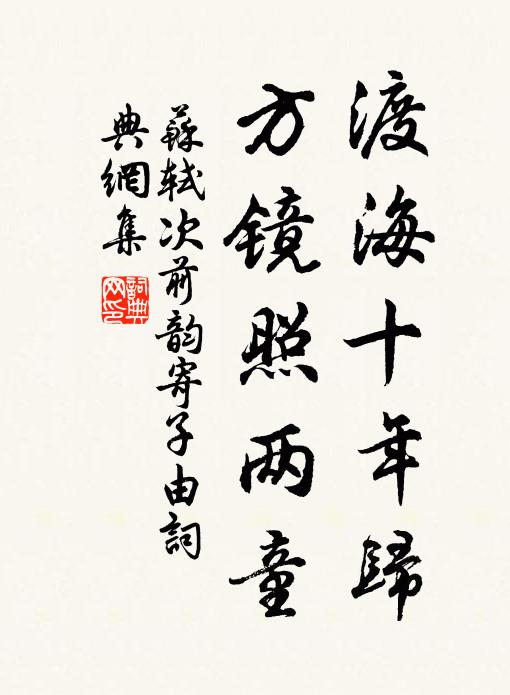 渡海十年歸
方镜照两童
蘇軾次前韵寄子由詞
典網集
詞典网印